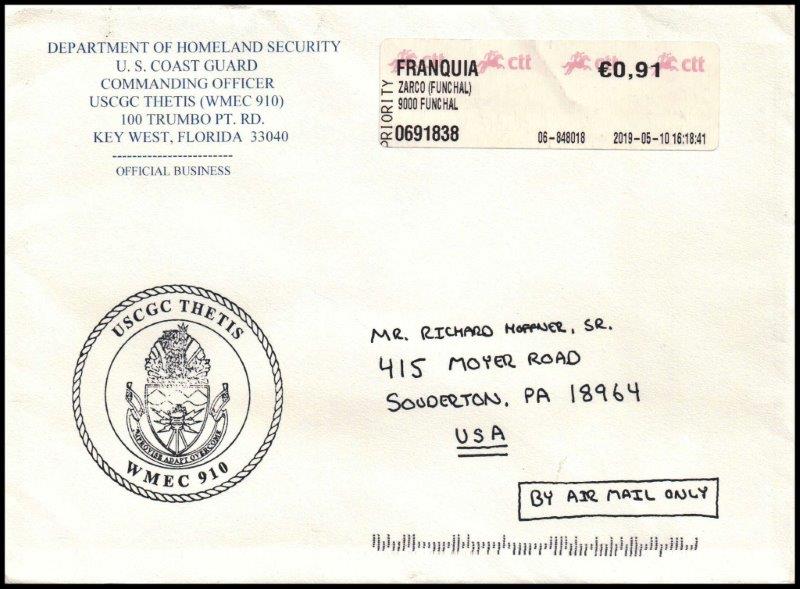 DEPARTMENT OF HOMELAND SECURITY
U. S. COAST GUARD
COMMANDING OFFICER
USCGC THETIS (WMEC 910)
100 TRUMBO PT. RD.
KEY WEST, FLORIDA 33040
------------------------
OFFICIAL BUSINESS
ctt ctt ctt
PRIORITY
FRANQUIA €0,91
ZARCO (FUNCHAL)
9000 FUNCHAL
0691838 06-848018 2019-05-10 16:18:41
USCGC THETIS
IMPROVISE ADAPT OVERCOME
WMEC 910
MR. RICHARD HOFFNER, SR.
415 MOYER ROAD
SOUDERTON, PA 18964
USA
BY AIR MAIL ONLY